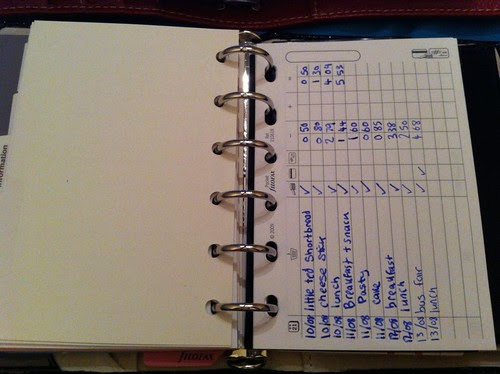 10/08 little ted Shortbread ✓ 0 50 0 50
10/08 cheese stick ✓ 0 80 1 30
10/08 lunch ✓ 2 79 4 09
11/08 Breakfast + snack ✓ 1 44 5 53
11/08 Pasty ✓ 1 00
11/08 cake ✓ 0 60
12/08 breakfast ✓ 0 85
12/08 lunch ✓ 3 38
13/08 bus fair ✓ 2 50
13/08 lunch ✓ 4 68
filofax
information
filofax